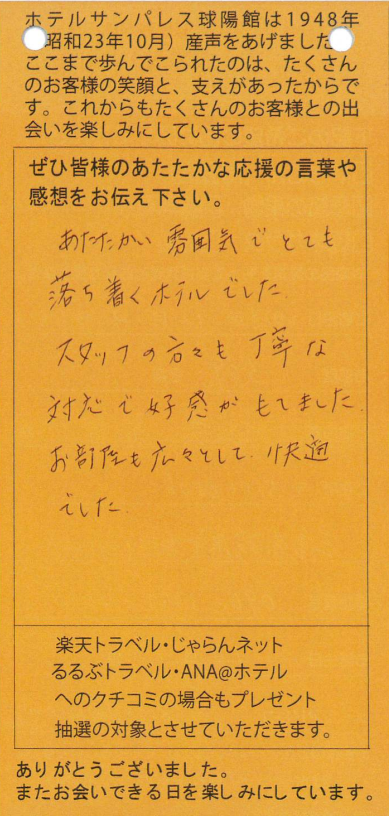 ホテルサンパレス球陽館は1948年
昭和23年10月）産声をあげました
ここまで歩んでこられたのは、たくさん
のお客様の笑顔と、支えがあったからで
す。これからもたくさんのお客様との出
会いを楽しみにしています。
ぜひ皆様のあたたかな応援の言葉や
感想をお伝え下さい。
あたたかい雰囲気でとても
落ち着くホテルでした
スタッフの方々も丁寧な
対応で好感がもてました.
お部屋も広々として、快適
でした.
楽天トラベル・じゃらんネット
るるぶトラベル・ANA@ホテル
へのクチコミの場合もプレゼント
抽選の対象とさせていただきます。
ありがとうございました。
またお会いできる日を楽しみにしています。